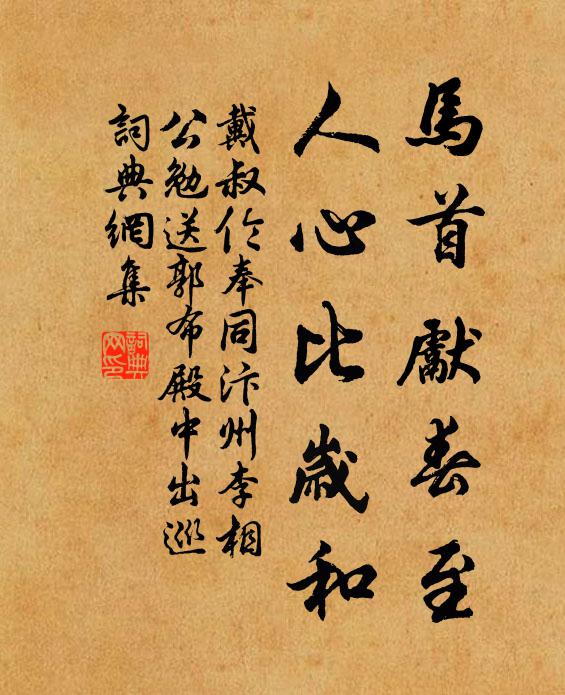 馬首獻春至
人心比歲和
戴叔伦奉同汴州李相
公勉送郭布殿中出巡
詞典網集
詞典
网印